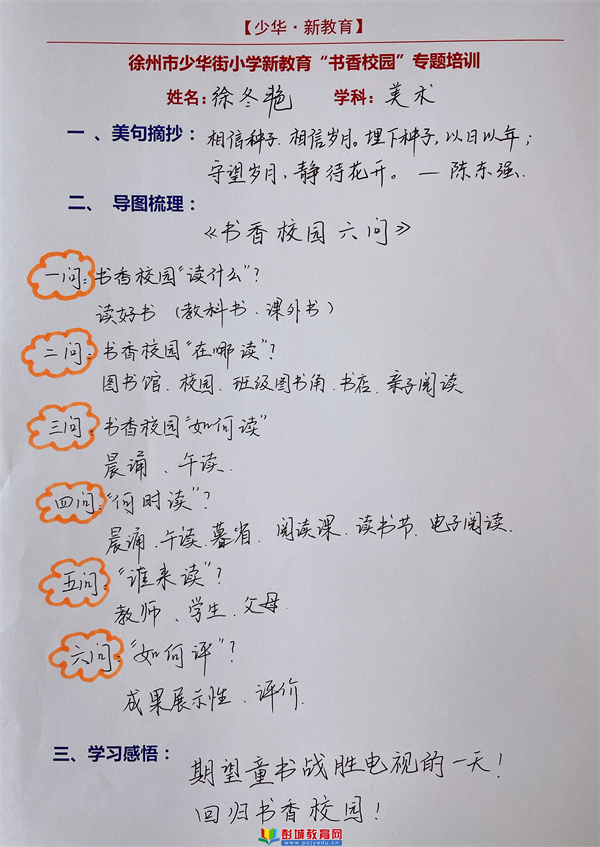 【少华·新教育】
徐州市少华街小学新教育“书香校园”专题培训
姓名：徐冬艳 学科：美术
一、美句摘抄：相信种子、相信岁月。埋下种子，以日以年；
守望岁月、静待花开。 — 陈东强.
二、 导图梳理：
《书香校园六问》
一问：书香校园“读什么”？
读好书 （教科书、课外书）
二问：书香校园“在哪读”？
图书馆、校园、班级图书角、书店、亲子阅读
三问：书香校园“如何读”
晨诵、午读.
四问：“何时读”？
晨诵、午读、暮省、阅读课、读书节、电子阅读.
五问：“谁来读”？
教师、学生、父母
六问：“如何评”？
成果展示性、评价.
三、学习感悟：
期望童书战胜电视的一天！
回归书香校园！
彭城教育网
www.pcjyedu.cn